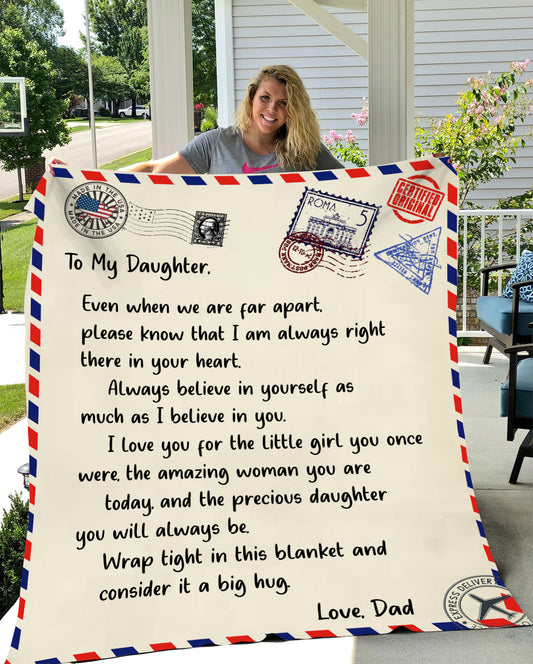 MADE IN THE USA
MADE IN THE USA
ROMA 5
CERTIFIED
ORIGINAL
12-10-
To My Daughter,
Even when we are far apart,
please know that I am always right
there in your heart.
Always believe in yourself as
much as I believe in you.
I love you for the little girl you once
were, the amazing woman you are
today, and the precious daughter
you will always be.
Wrap tight in this blanket and
consider it a big hug.
Love, Dad
EXPRESS DELIVERY